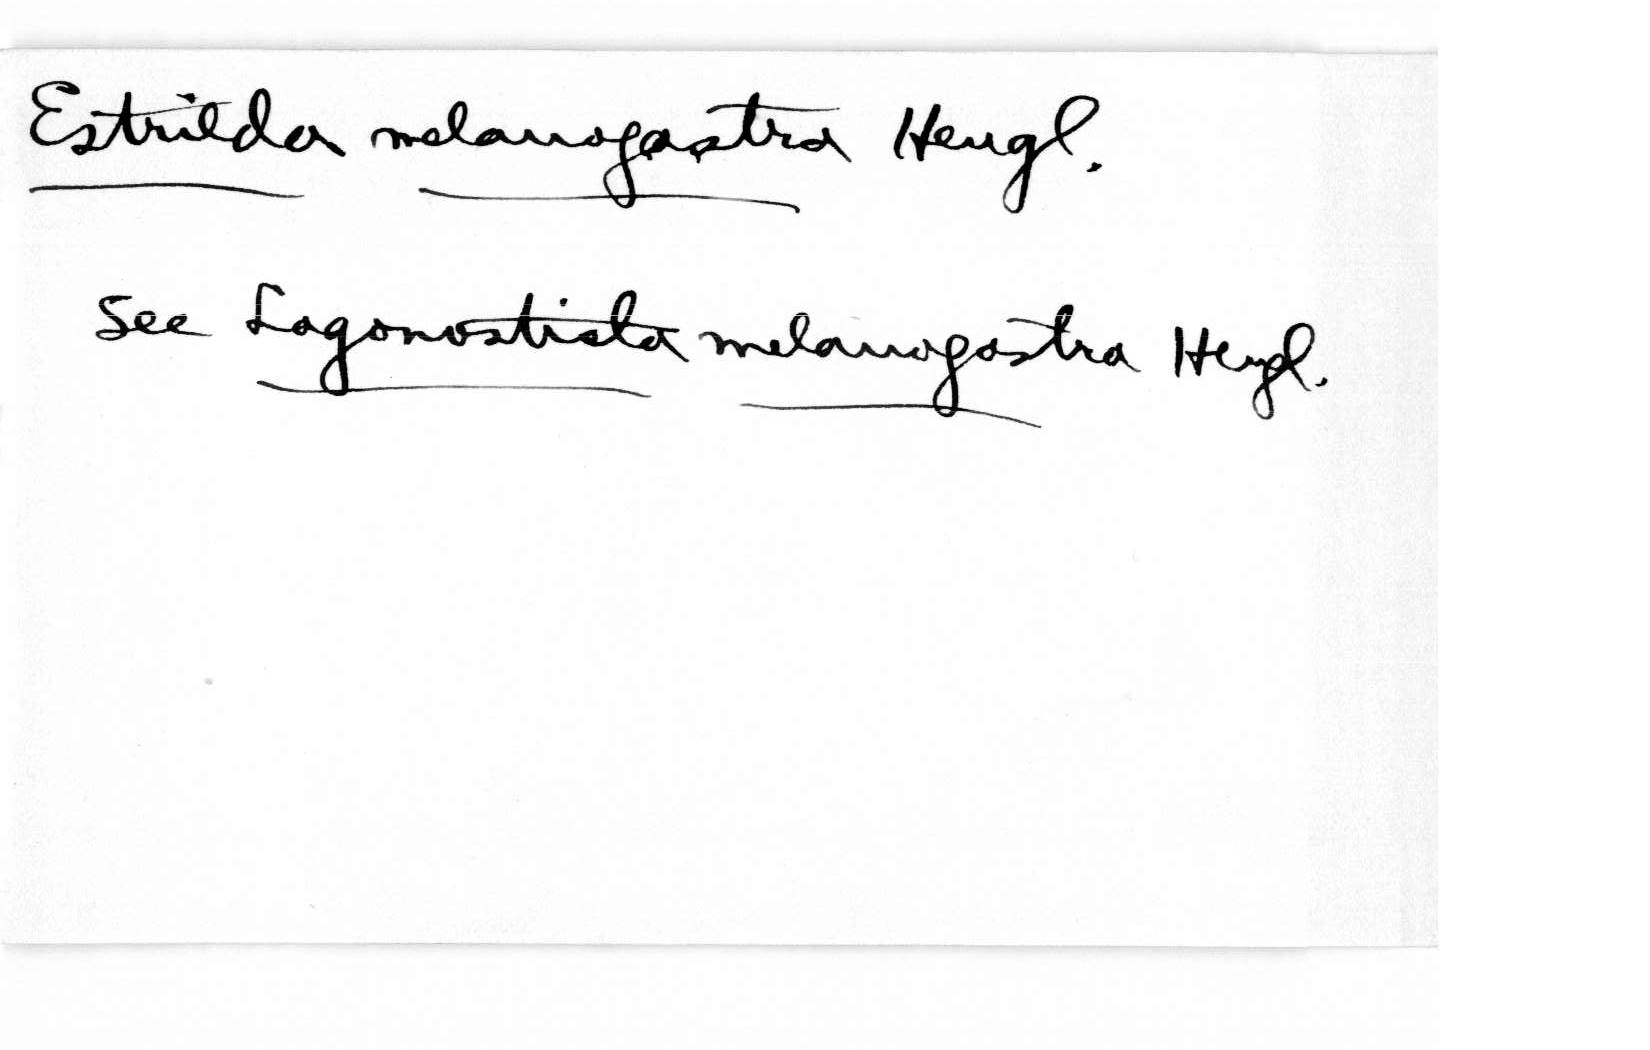 Estrilda melanogastra Heugl.
See Lagonosticta melanogastra Heugl.